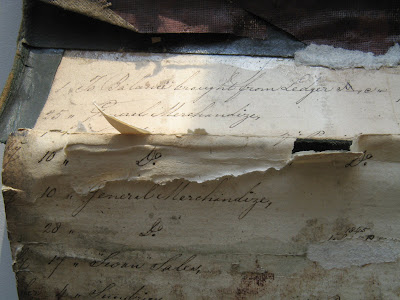 1 " To Balance brought from Ledger
25 " General Merchandize,
10 " Do. Do.
10 " General Merchandize,
28 " Do.
17 " Swan Sales,
" Sundries